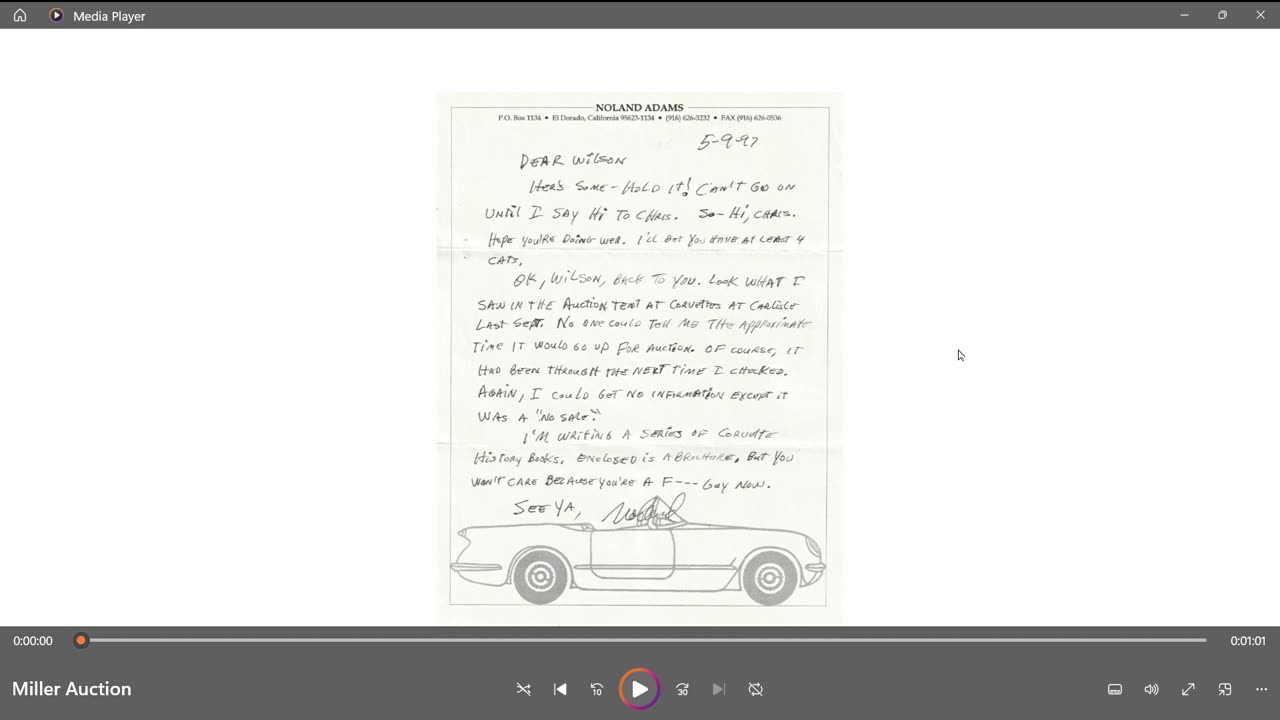 Media Player
NOLAND ADAMS
P.O. Box 1134 • El Dorado, California 95623-1134 • (916) 626-3232 • FAX (916) 626-0536
5-9-97
DEAR WILSON
HERE'S SOME - HOLD IT! CAN'T GO ON
UNTIL I SAY HI TO CHRIS. SO - HI, CHRIS.
HOPE YOU'RE DOING WELL. I'LL BET YOU HAVE AT LEAST 4
CATS,
OK, WILSON, BACK TO YOU. LOOK WHAT I
SAW IN THE AUCTION TENT AT CORVETTES AT CARLISLE
LAST SEPT. NO ONE COULD TELL ME THE APPROXIMATE
TIME IT WOULD GO UP FOR AUCTION. OF COURSE, IT
HAD BEEN THROUGH THE NEXT TIME I CHECKED.
AGAIN, I COULD GET NO INFORMATION EXCEPT IT
WAS A "NO SALE".
I'M WRITING A SERIES OF CORVETTE
HISTORY BOOKS. ENCLOSED IS A BROCHURE, BUT YOU
WON'T CARE BECAUSE YOU'RE A F--- GUY NOW.
SEE YA, Noland
0:00:00
0:01:01
Miller Auction
10
30